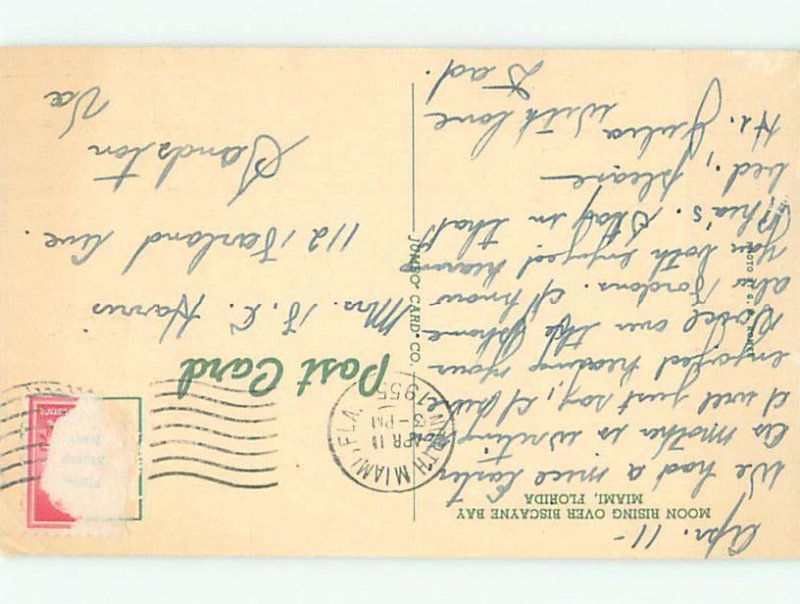 MOON RISING OVER BISCAYNE BAY
MIAMI, FLORIDA
Apr. 11-
We had a nice Easter
as mother is writing
I will just say, I
enjoyed hearing your
voice over the phone
also Gordons. I know
you both enjoyed hearing
Rhea's. Stay in that
bed, please
Hi. Julia with love
Dad.
JUMBO CARD CO.
PHOTO BY G. W. ROMER
Post Card
NORTH MIAMI, FLA.
APR 11
3 - PM
1955
Mrs. F. C. Harris
112 Garland Ave.
Sandston
Va